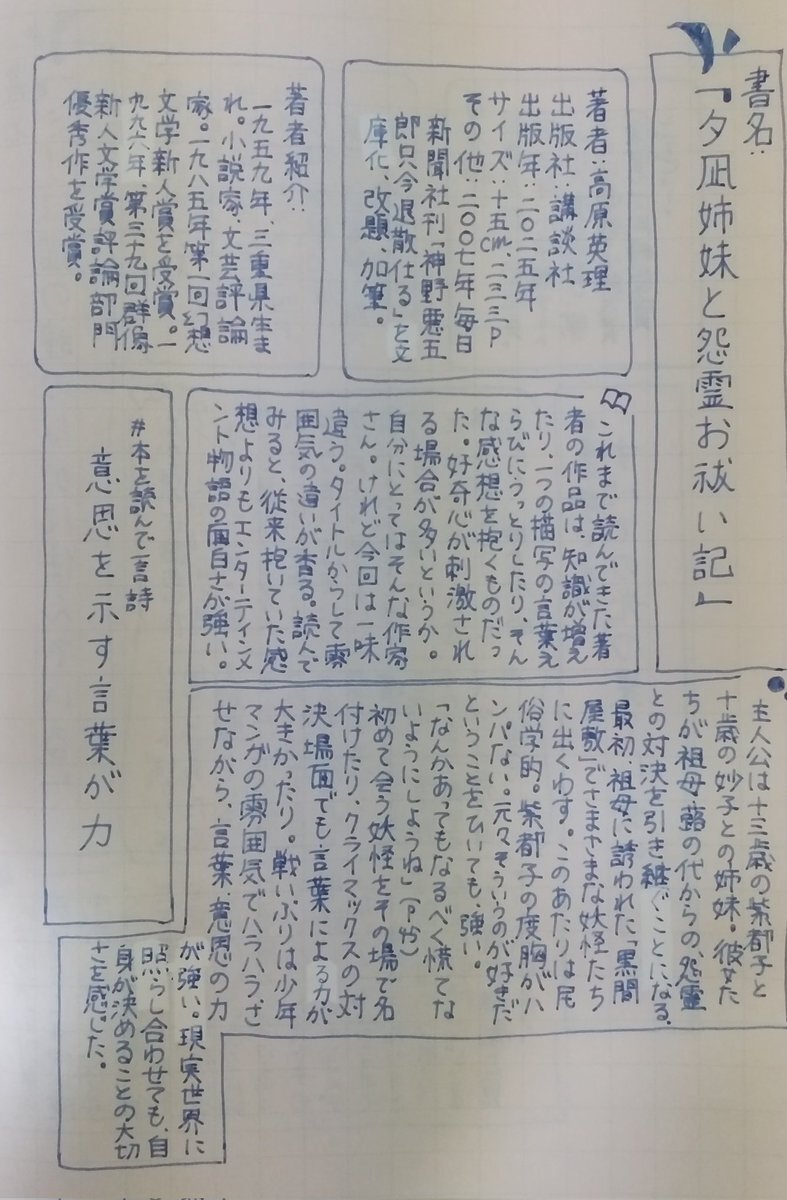 書名:
「夕凪姉妹と怨霊お祓い記」
著者:高原英理
出版社:講談社
出版年:二〇二五年
サイズ:十五cm、二三三P
その他:二〇〇七年毎日
新聞社刊「神野悪五
郎只今退散仕る」を文
庫化、改題、加筆。
著者紹介:
一九五九年、三重県生ま
れ。小説家・文芸評論
家。一九八五年第一回幻想
文学新人賞を受賞。一
九九六年、第三十九回群像
新人文学賞評論部門
優秀作を受賞。
これまで読んできた著
者の作品は、知識が増え
たり、一つの描写の言葉え
らびにうっとりしたり、そん
な感想を抱くものだっ
た。好奇心が刺激され
る場合が多いというか。
自分にとってはそんな作家
さん。けれど今回は一味
違う。タイトルからして雰
囲気の違いが香る。読んで
みると、従来抱いていた感
想よりもエンターテインメ
ント物語の面白さが強い。
#本を読んで言詩
意思を示す言葉が力
主人公は十三歳の紫都子と
十歳の妙子との姉妹。彼女た
ちが祖母・蕗の代からの、怨霊
との対決を引き継ぐことになる。
最初、祖母に誘われた「黒間
屋敷」でさまざまな妖怪たち
に出くわす。このあたりは民
俗学的。紫都子の度胸がハ
ンパない。元々そういうのが好きだ
ということをひいても、強い。
「なんかあってもなるべく慌てな
いようにしようね」
初めて会う妖怪をその場で名
付けたり、クライマックスの対
決場面でも言葉による力が
大きかったり。戦いぶりは少年
マンガの雰囲気でハラハラさ
せながら、言葉、意思の力
が強い。現実世界に
照らし合わせても、自
身が決めることの大切
さを感じた。